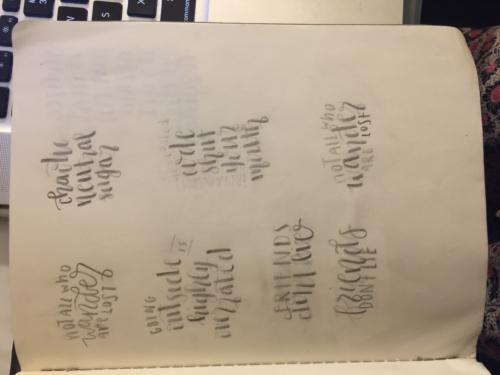 NOT ALL WHO
wander
ARE LOST
GOING
outside
IS
highly
overrated
FRIENDS
don't lie
friends
DON'T LIE
chaotic
neutral
sugar
code
shut
your
mouth
NOT ALL WHO
wander
ARE LOST
command